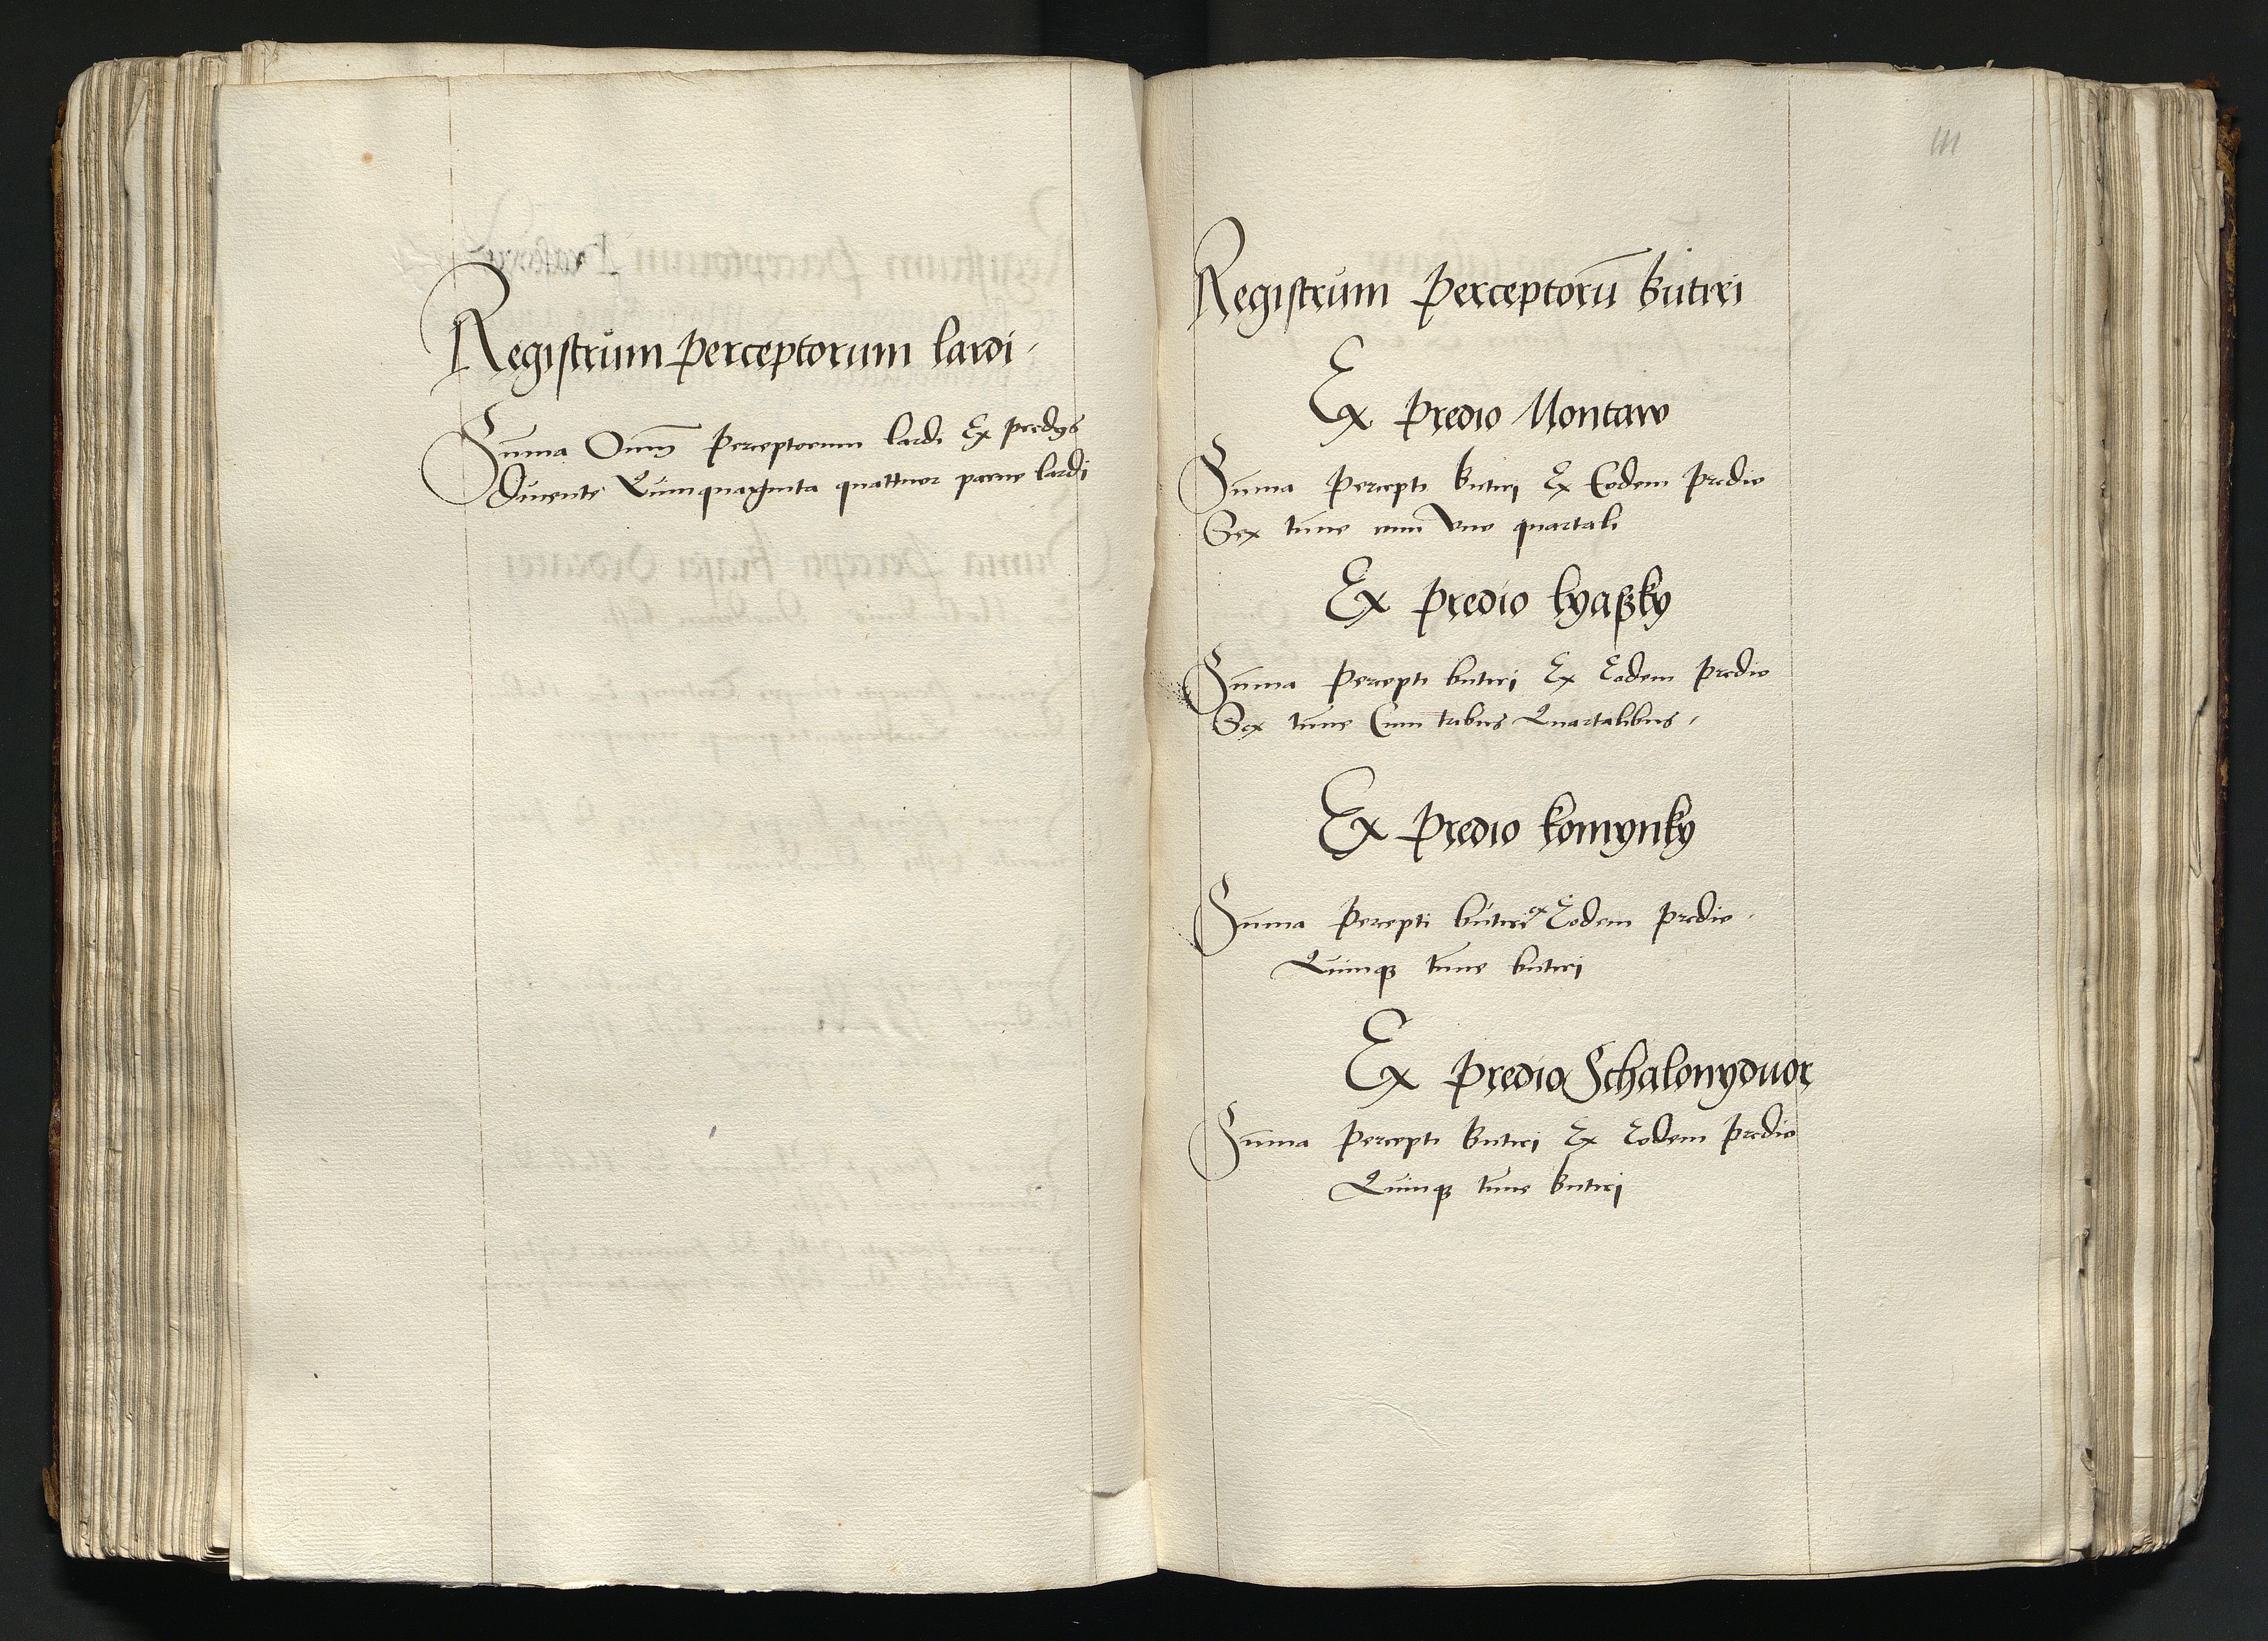 Registrum perceptorum lardi
Suma Oim perceptorum lardi Ex predys
Ducente Quinquaginta quattuor parne lardi
111
Registrum perceptoru butiri
Ex predio Montaw
Suma percepti butiri Ex Eodem predio
Sex tune cum vno quartali
Ex predio lyaßky
Suma percepti butiri Ex Eodem predio
Sex tune Cum tribus Quartalibus
Ex predio komynky
Suma percepti butiri ex Eodem predio
Quinqz tune butiri
Ex predio Schalonyduor
Suma percepti butiri Ex Eodem predio
Quinqz tune butiri